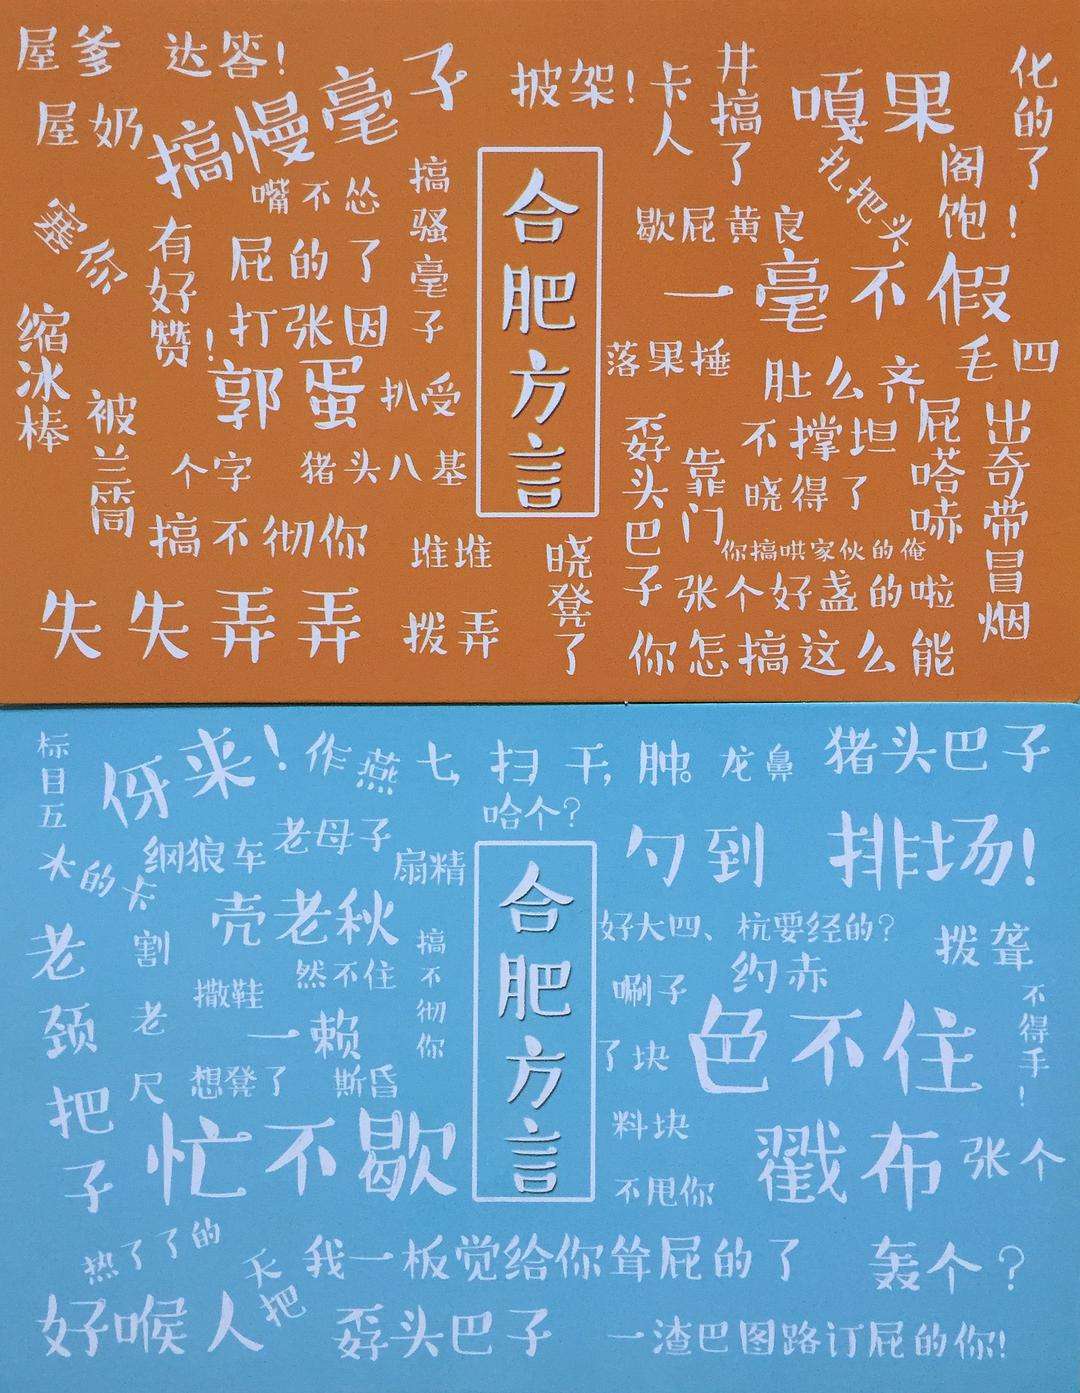 屋爹
达答!
屋奶
搞慢毫子
嘴不怂
搞骚毫子
塞你
有好赞!
屁的了
打张因
缩冰棒
郭蛋
扒受
被兰筒
个字
猪头八基
搞不彻你
堆堆
失失弄弄
拨弄
合肥方言
披架!
卡人
井搞了
嘎果
化的了!
扎把头
阁饱
歇屁黄良
一毫不假
落果捶
肚么齐
毛四
孬头巴子
靠门
不撑坦
晓得了
屁嗒啉
出奇带冒烟
你搞哄家伙的俺
晓凳了
张个好盏的啦
你怎搞这么能
标目五
伢来!
作燕七,扫干,肿。
龙鼻
猪头巴子
哈个?
头的卡
纲狼车
老母子
扇精
合肥方言
勺到
排场!
壳老秋
老颈把子
割老尺
搞不彻你
好大四、杭要经的?
拨聋
撒鞋
然不住
唰子
约赤
一赖
了块
色不住
不得手!
想凳了
斯昏
料块
忙不歇
戳布
张个
不甩你
热了了的
天把
我一板觉给你耸屁的了
轰个?
好喉人
孬头巴子
一渣巴图路订屁的你!